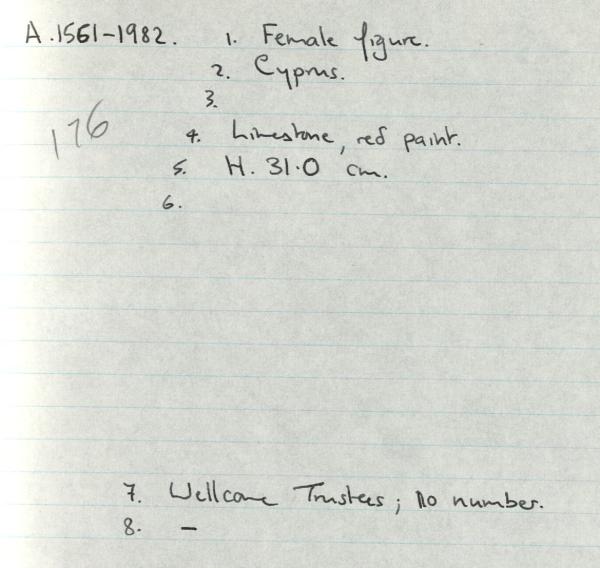 A.1561-1982. 1. Female figure.
2. Cyprus.
3.
176
4. Limestone, red paint.
5. H. 31.0 cm.
6.
7. Wellcome Trustees; no number.
8. –